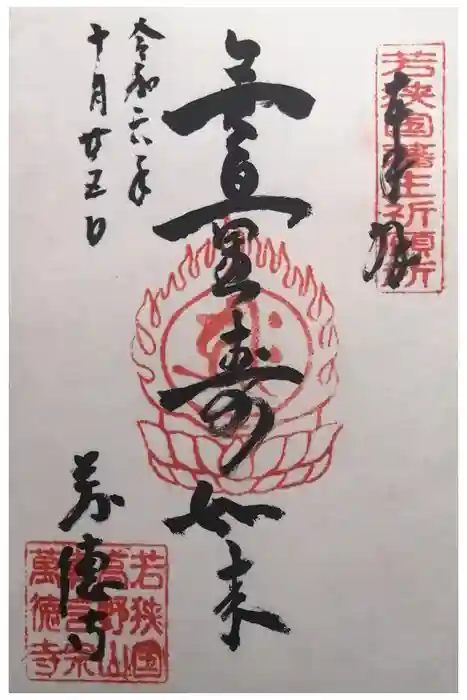 奉拝
若狭国藩主祈願所
無量寿如来
令和六年
十月廿五日
萬徳寺
若狭国
高野山
真言宗
萬徳寺